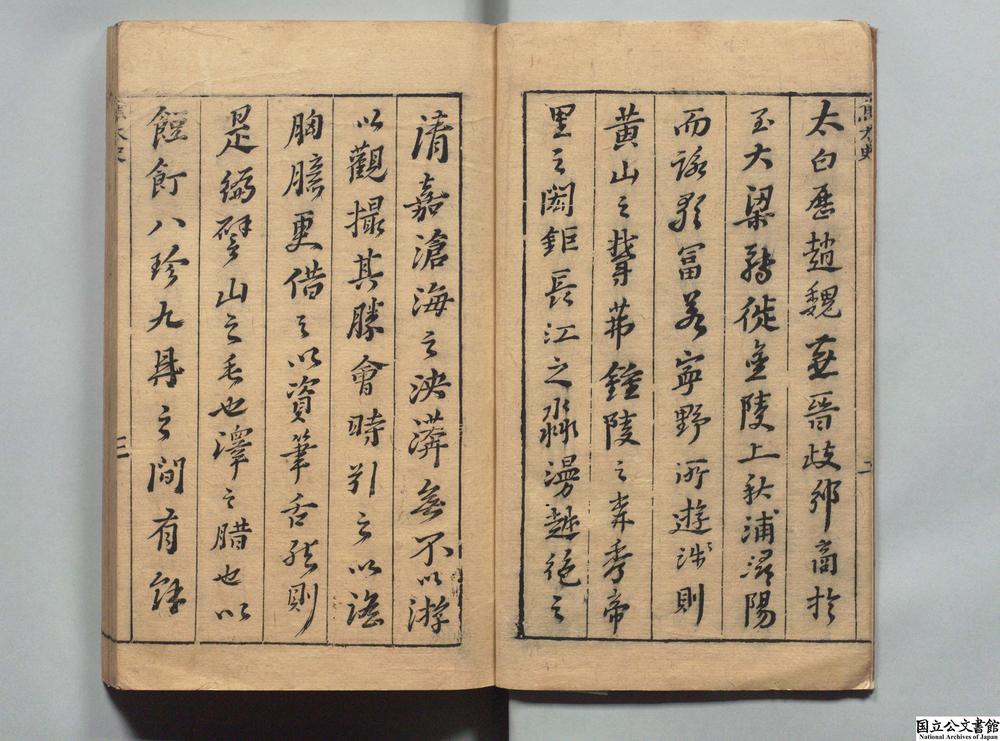 太白歷趙魏燕晉歧邠商於
至大梁轉徙金陵上秋浦潯陽
而詠歌冨若寧野所遊涉則
黃山之聳茀鍾陵之奔秀帝
里之闕鉅長江之淼漫越絕之
清嘉滄海之泱漭無不以游
以觀撮其勝會時引之以
胸臆更借之以資筆舌然則
是編譬山之毳也澤之腊也以
餖飣八珍九鼎之間有餘
三
国立公文書館
National Archives of Japan